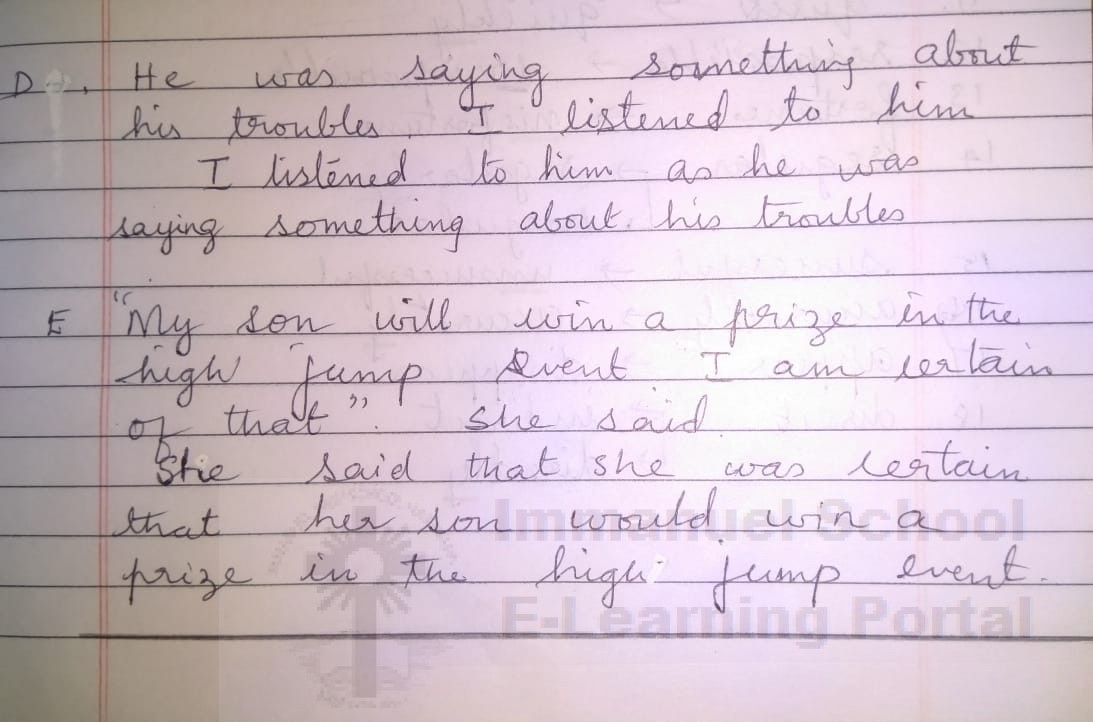 D . He was saying something about
his troubles. I listened to him
I listened to him as he was
saying something about his troubles
E "My son will win a prize in the
high jump event. I am certain
of that". She said.
She said that she was certain
that her son would win a
prize in the high jump event.
Immanuel School
E-Learning Portal